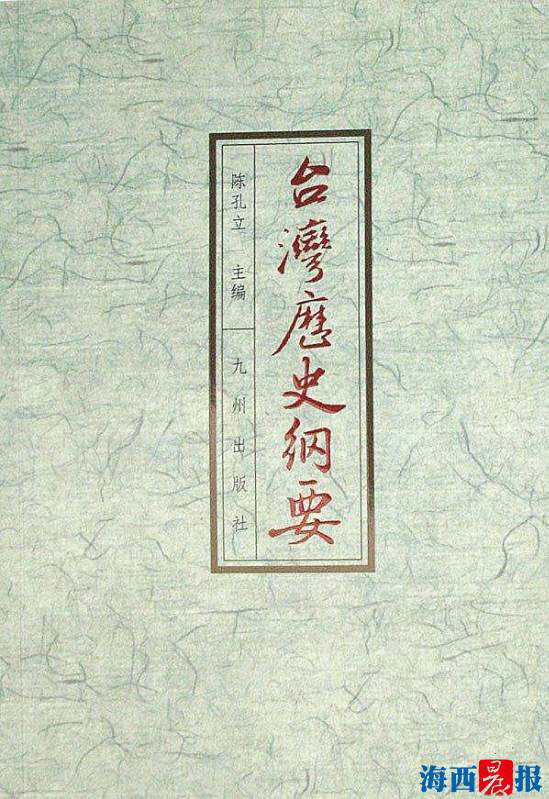 台灣歷史綱要
陈孔立 主编 九州出版社
海西晨报